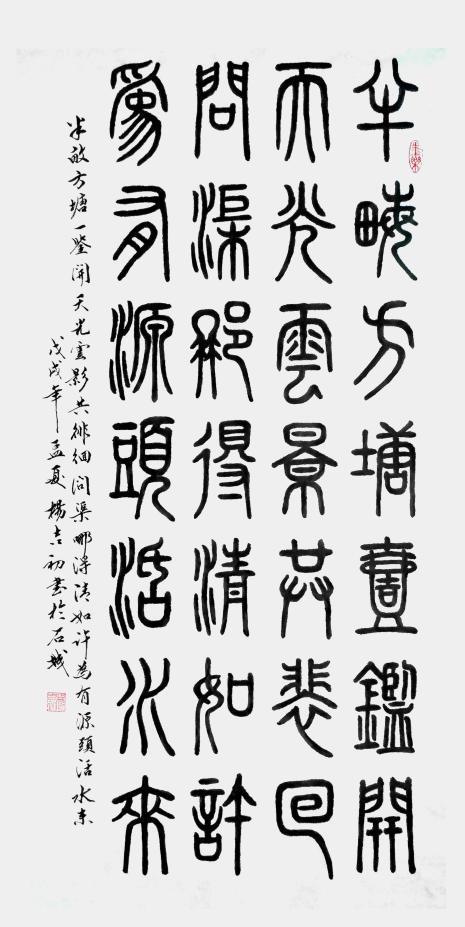 半畮方塘壹鑑開
天光雲景共裴回
問渠那得清如許
爲有源頭活水來
半畝方塘一鑒開天光雲影共徘徊問渠哪得清如许為有源頭活水来
戊戌年孟夏楊吉初书於石城